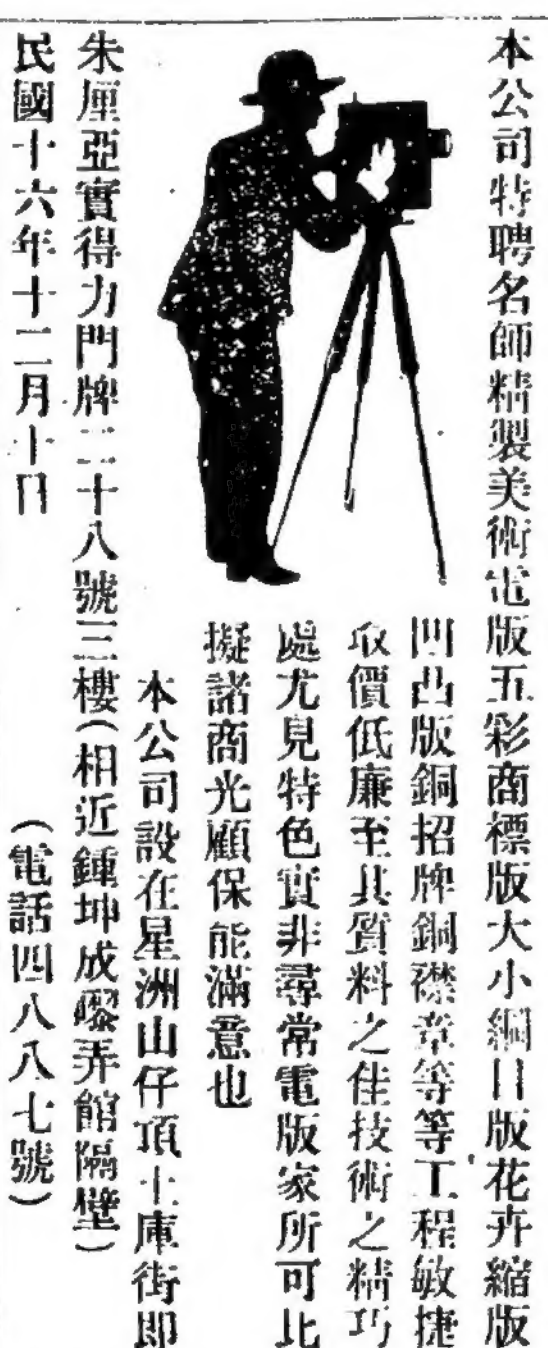 本公司特聘名師精製美術電版五彩商標版大小綱目版花卉縮版
凹凸版銅招牌銅襟章等等工程敏捷
收價低廉至其質料之佳技術之精巧
處尤見特色實非尋常電版家所可比
擬諸商光顧保能滿意也
本公司設在星洲山仔頂土庫街即
朱厘亞實得力門牌二十八號三樓(相近鍾坤成㗎弄館隔壁)
民國十六年十二月十日 (電話四八八七號)